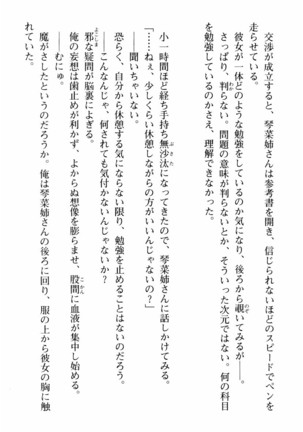 交渉が成立すると、琴菜姉さんは参考書を開き、信じられないほどのスピードでペンを
走らせている。
彼女が一体どのような勉強をしているのか気になり、後ろから覗いてみるが――。
さっぱり、判らない。問題の意味が判らないとか、そういった次元ではない。何の科目
を勉強しているのかさえ、理解できなかった。
小一時間ほど経ち手持ち無沙汰になってきたので、琴菜姉さんに話しかけてみる。
「……ねぇ、少しくらい休憩しながらの方がいいんじゃないの？」
――聞いちゃいない。
恐らく、自分から休憩する気にならない限り、勉強を止めることはないのだろう。
こんなんじゃ、何されても気付かないんじゃないか？
邪な疑問が脳裏によぎる。
俺の妄想は歯止めが利かず、よからぬ想像を膨らませ、股間に血液が集中し始める。
――むにゅ。
魔がさしたというのだろうか。俺は琴菜姉さんの後ろに回り、服の上から彼女の胸に触
れていた。